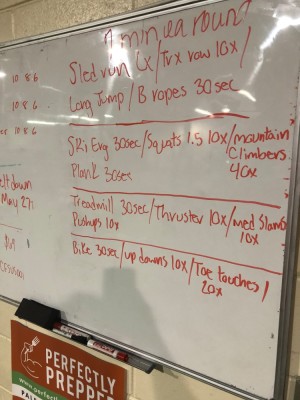 1 min ea round
Sled run 6x / Trx row 10x /
Long Jump / B ropes 30sec
Ski Erg 30sec / Squats 1.5 10x / mountain
Climbers
Plank 30sec
40x
Treadmill 30sec / Thruster 10x / med Slams
Pushups 10x
10x
Bike 30sec / up downs 10x / Toe touches /
20x
10 8 6
10 8 6
10 8 6
elt down
May 27
$69
PERFECTLY
PREPPE
www.perfectly